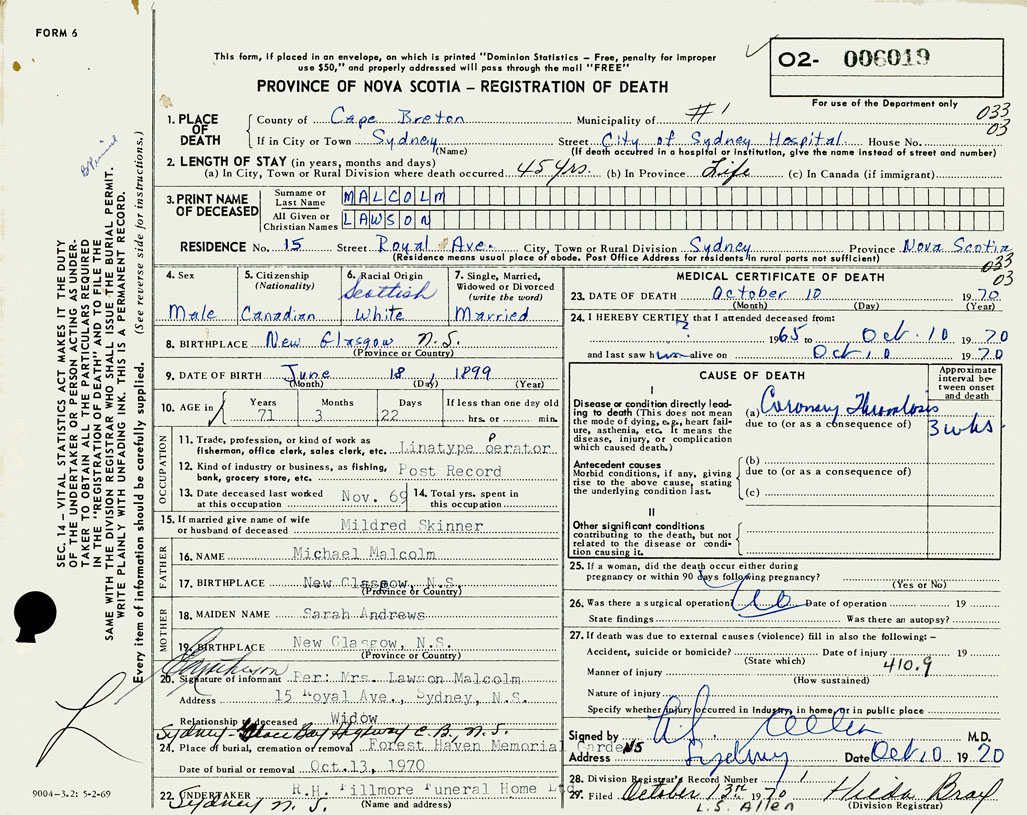 FORM 6
This form, if placed in an envelope, on which is printed "Dominion Statistics – Free, penalty for improper
use $50," and properly addressed will pass through the mail "FREE"
O2- 006019
For use of the Department only
PROVINCE OF NOVA SCOTIA – REGISTRATION OF DEATH
033
03
1. PLACE OF DEATH
County of Cape Breton Municipality of #1
If in City or Town Sydney Street City of Sydney Hospital House No.
(Name) (If death occurred in a hospital or institution, give the name instead of street and number)
2. LENGTH OF STAY (in years, months and days)
(a) In City, Town or Rural Division where death occurred 45 yrs. (b) In Province Life (c) In Canada (if immigrant)
3. PRINT NAME OF DECEASED
Surname or Last Name MALCOLM
All Given or Christian Names LAWSON
RESIDENCE No. 15 Street Royal Ave. City, Town or Rural Division Sydney Province Nova Scotia
(Residence means usual place of abode. Post Office Address for residents in rural parts not sufficient)
033
03
4. Sex Male
5. Citizenship (Nationality) Canadian
6. Racial Origin Scottish White
7. Single, Married, Widowed or Divorced (write the word) Married
8. BIRTHPLACE New Glasgow N.S.
(Province or Country)
9. DATE OF BIRTH June 18, 1899
(Month) (Day) (Year)
10. AGE in Years 71 Months 3 Days 22 If less than one day old hrs. or min.
OCCUPATION
11. Trade, profession, or kind of work as
fisherman, office clerk, sales clerk, etc. Linatype operator
12. Kind of industry or business, as fishing,
bank, grocery store, etc. Post Record
13. Date deceased last worked
at this occupation Nov. 69
14. Total yrs. spent in
this occupation
15. If married give name of wife
or husband of deceased Mildred Skinner
FATHER
16. NAME Michael Malcolm
17. BIRTHPLACE New Glasgow, N.S.
(Province or Country)
MOTHER
18. MAIDEN NAME Sarah Andrews
19. BIRTHPLACE New Glasgow, N.S.
(Province or Country)
20. Signature of informant Per: Mrs. Lawson Malcolm
Address 15 Royal Ave., Sydney, N.S.
Relationship to deceased Widow
Sydney - Glace Bay Highway C.B., N.S.
21. Place of burial, cremation or removal Forest Haven Memorial Gardens
Date of burial or removal Oct.13, 1970
22. UNDERTAKER R.H. Fillmore Funeral Home Ltd
Sydney N.S. (Name and address)
MEDICAL CERTIFICATE OF DEATH
23. DATE OF DEATH October 10 1970
(Month) (Day) (Year)
24. I HEREBY CERTIFY that I attended deceased from:
? 1965 to Oct. 10 1970
and last saw him alive on Oct. 10 1970
CAUSE OF DEATH
Approximate interval between onset and death
I
Disease or condition directly leading to death (This does not mean the mode of dying, e.g., heart failure, asthenia, etc. It means the disease, injury, or complication which caused death.)
(a) Coronary Thrombosis
due to (or as a consequence of) 3 wks.
Antecedent causes
Morbid conditions, if any, giving rise to the above cause, stating the underlying condition last.
(b)
due to (or as a consequence of)
(c)
II
Other significant conditions
contributing to the death, but not related to the disease or condition causing it.
25. If a woman, did the death occur either during
pregnancy or within 90 days following pregnancy?
(Yes or No)
26. Was there a surgical operation? No Date of operation 19
State findings Was there an autopsy?
27. If death was due to external causes (violence) fill in also the following: –
Accident, suicide or homicide? Date of injury 19
(State which) 410.9
Manner of injury
(How sustained)
Nature of injury
Specify whether injury occurred in Industry, in home, or in public place
Signed by Allen M.D.
Address Sydney NS Date Oct 10 1970
28. Division Registrar's Record Number 1
29. Filed October 13th 1970 Hilda Bray
L.S. Allen (Division Registrar)
SEC. 14 – VITAL STATISTICS ACT MAKES IT THE DUTY
OF THE UNDERTAKER OR PERSON ACTING AS UNDER-
TAKER TO OBTAIN ALL THE PARTICULARS REQUIRED
IN THE "REGISTRATION OF DEATH" AND TO FILE THE
SAME WITH THE DIVISION REGISTRAR WHO SHALL ISSUE THE BURIAL PERMIT.
WRITE PLAINLY WITH UNFADING INK. THIS IS A PERMANENT RECORD.
Every item of information should be carefully supplied. (See reverse side for instructions.)
9004-3.2: 5-2-69